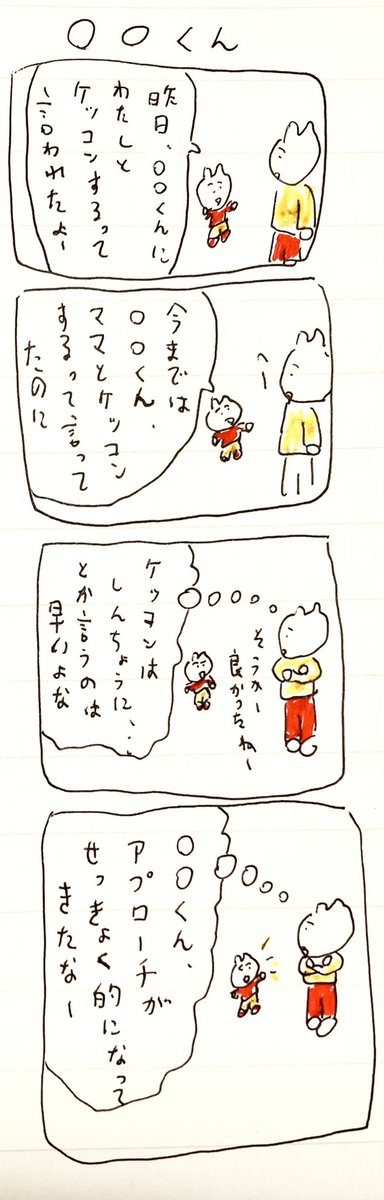 〇〇くん
昨日、〇〇くんに
わたしと
ケッコンするって
言われたよー
今までは
〇〇くん、
ママとケッコン
するって言って
たのに
へー
そうかー
良かったねー
ケッコンは
しんちょうに、、
とか言うのは
早いよな
〇〇くん、
アプローチが
せっきょく的になって
きたなー